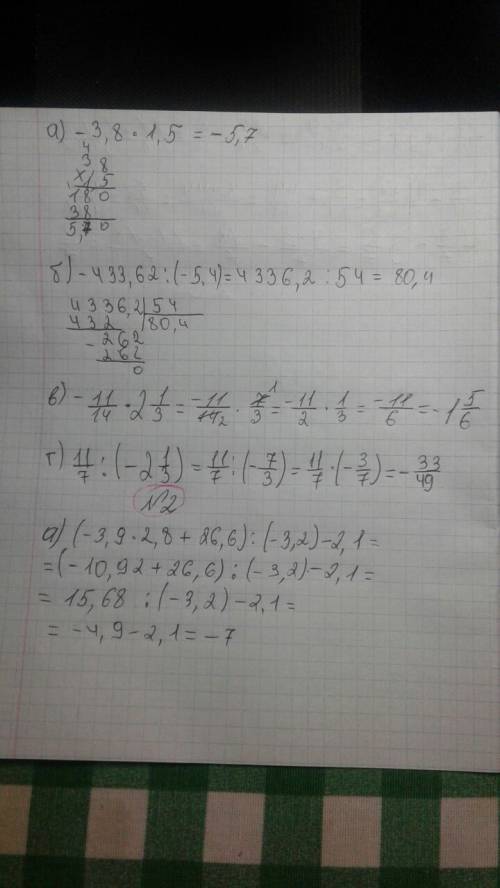 а) -3,8 · 1,5 = -5,7
4
38
× 15
180
38
5,70
б) -433,62 : (-5,4) = 4336,2 : 54 = 80,4
4336,2 | 54
432 | 80,4
- 262
262
0
в) - 11/14 · 2 1/3 = -11/14 2 · 7 1/3 = -11/2 · 1/3 = -11/6 = -1 5/6
г) 11/7 : (-2 1/3) = 11/7 : (-7/3) = 11/7 · (-3/7) = - 33/49
№2
а) (-3,9 · 2,8 + 26,6) : (-3,2) - 2,1 =
= (-10,92 + 26,6) : (-3,2) - 2,1 =
= 15,68 : (-3,2) - 2,1 =
= -4,9 - 2,1 = -7